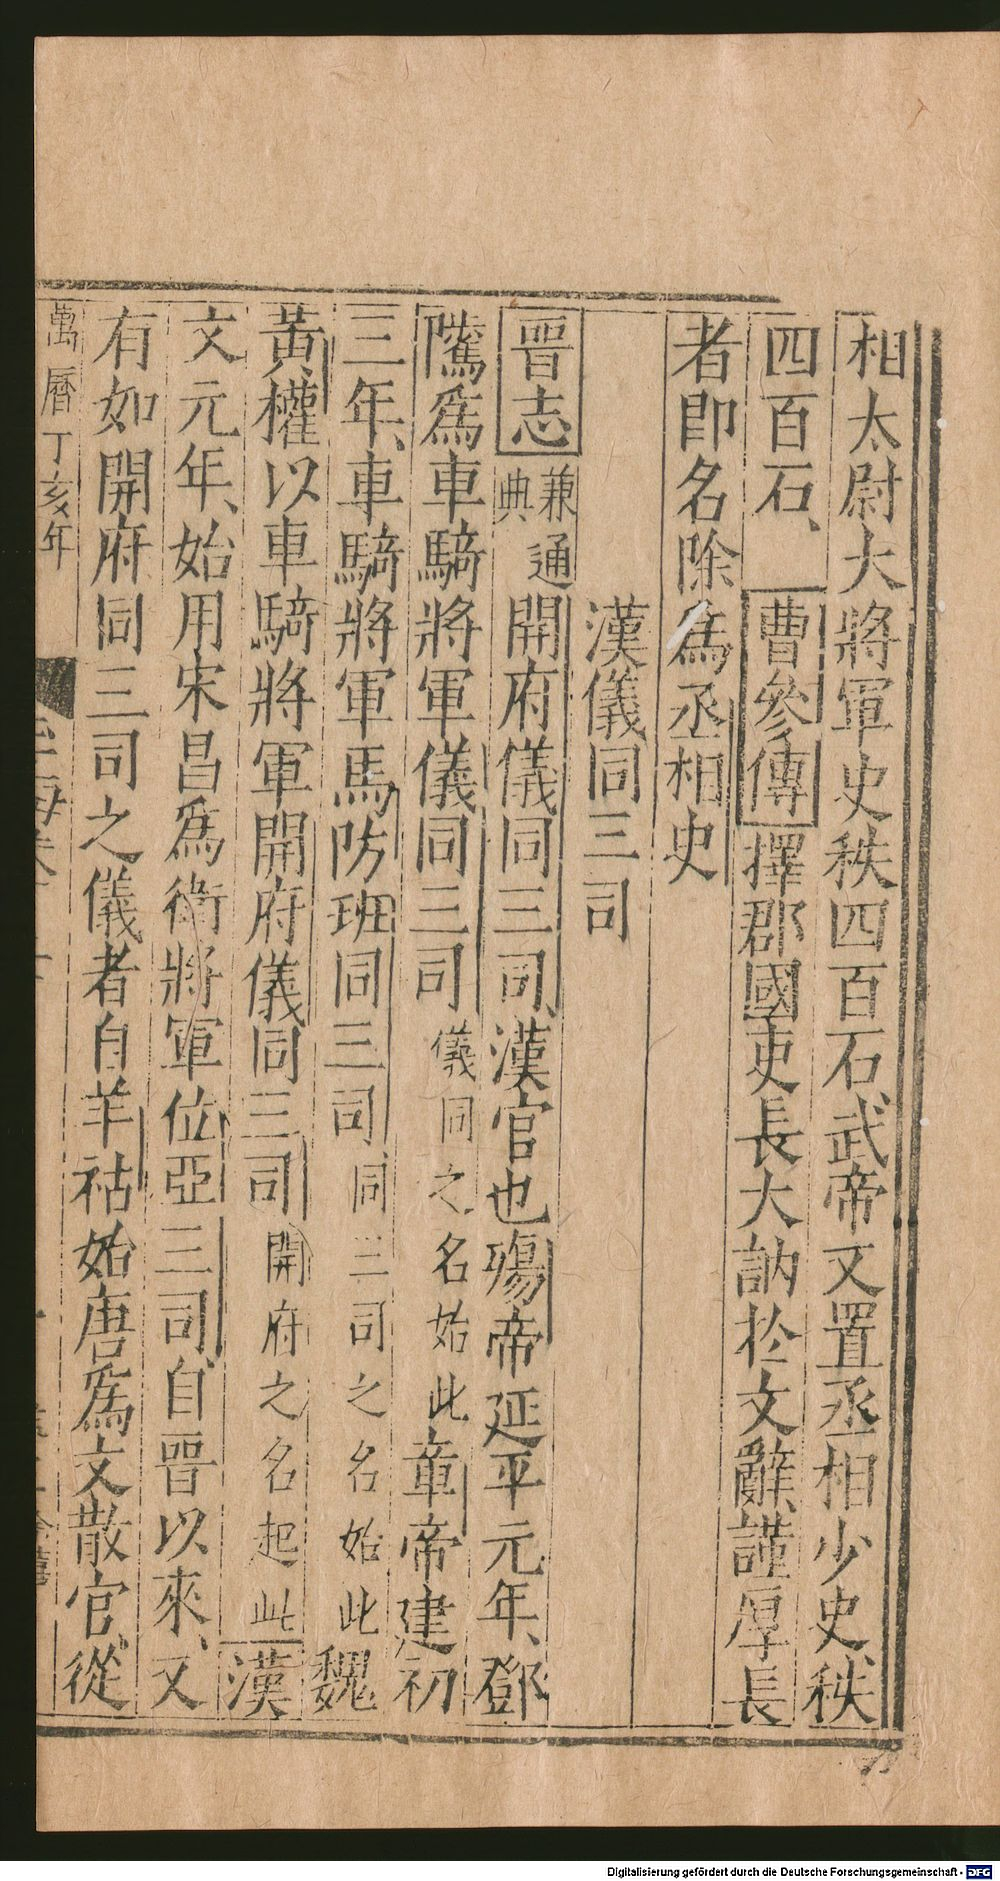 相太尉大將軍史秩四百石武帝又置丞相少史秩
四百石、曹參傳擇郡國吏長大訥於文辭謹厚長
者即名除爲丞相史
漢儀同三司
晉志兼通典開府儀同三司漢官也殤帝延平元年、鄧
隲爲車騎將軍儀同三司儀同之名始此章帝建初
三年、車騎將軍馬防班同三司同三司之名始此魏
黃權以車騎將軍開府儀同三司開府之名起此漢
文元年、始用宋昌爲衛將軍位亞三司自晉以來、又
有如開府同三司之儀者自羊祜始唐爲文散官、從
萬曆丁亥年
Digitalisierung gefördert durch die Deutsche Forschungsgemeinschaft - DFG